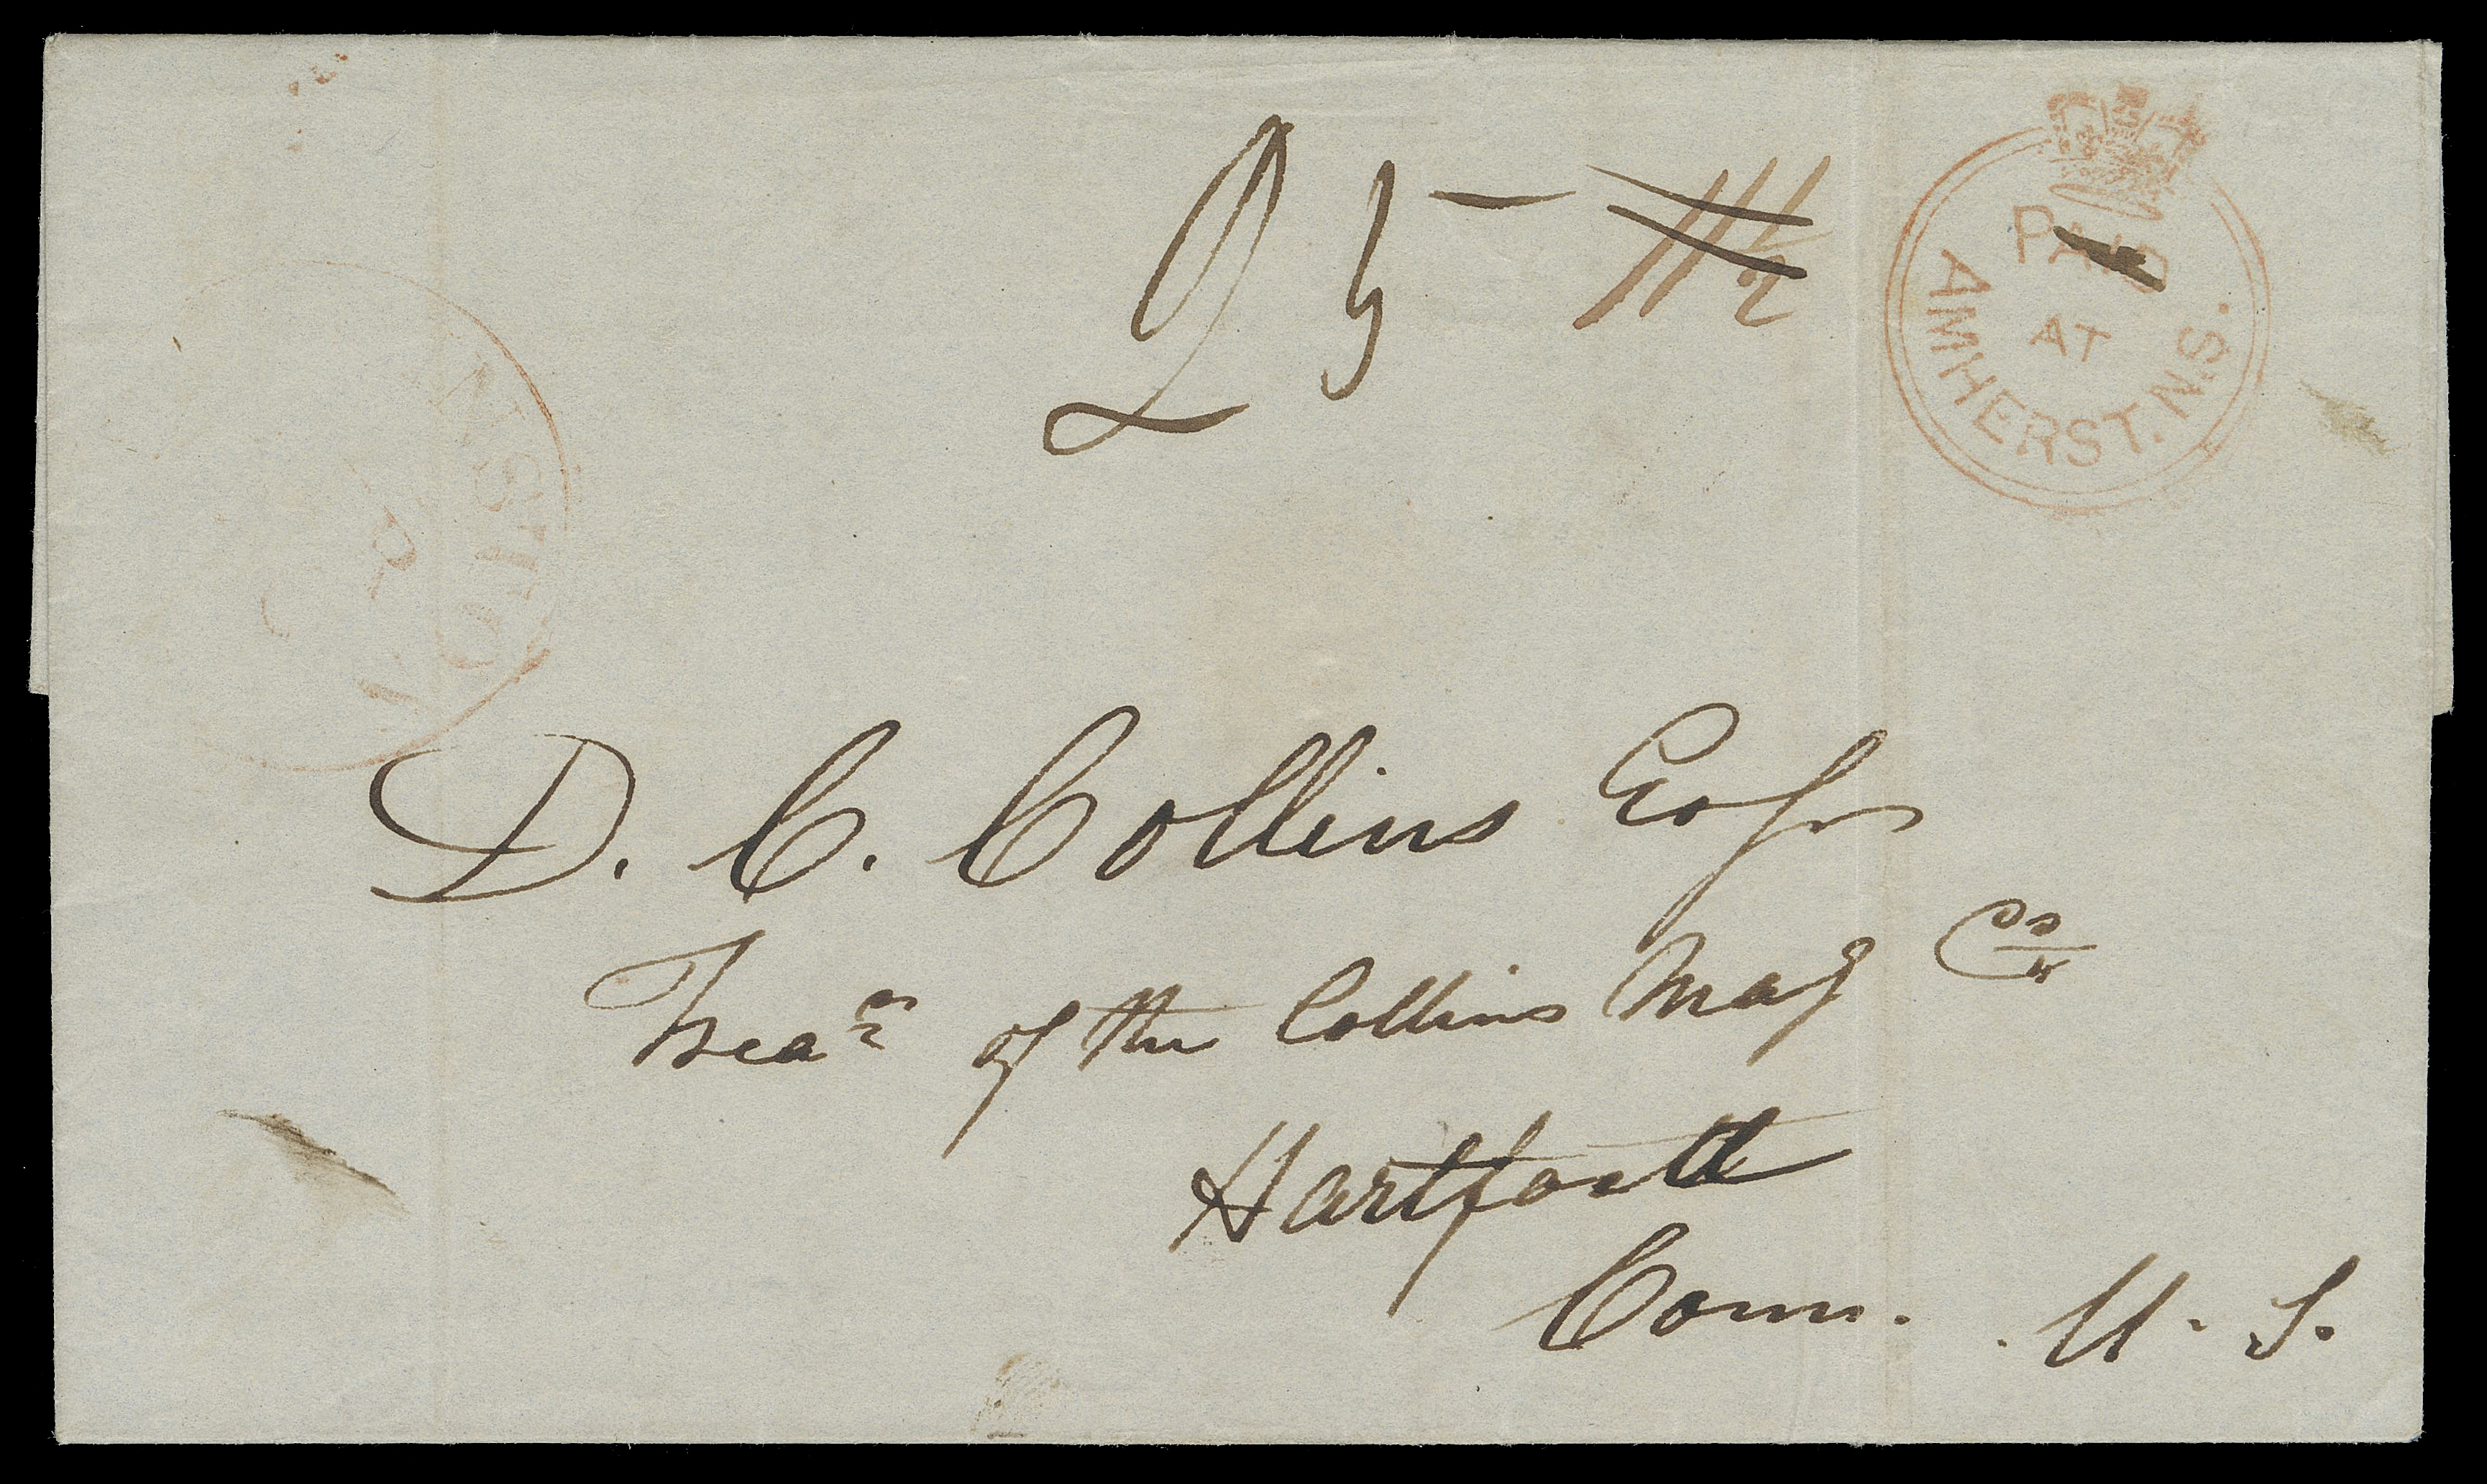 25 11½
PAID
AT
AMHERST. N.S.
D. C. Collins Esqr
Treasr of the Collins Mafg Co
Hartford
Conn. U. S.